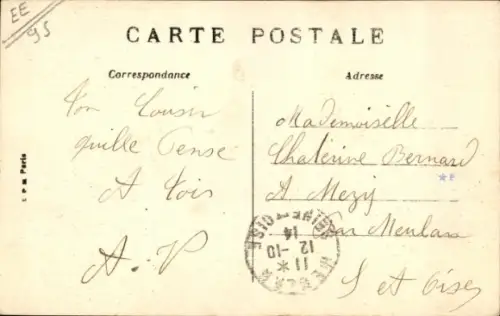 EE
95
CARTE POSTALE
Correspondance
Adresse
ton Cousin
quille Pense
A toi
A. P
Mademoiselle
Chaterine Bernard
A Mezy
par Meulan
S et Oise
11 *
12-10
14
SEINE ET OISE
Paris